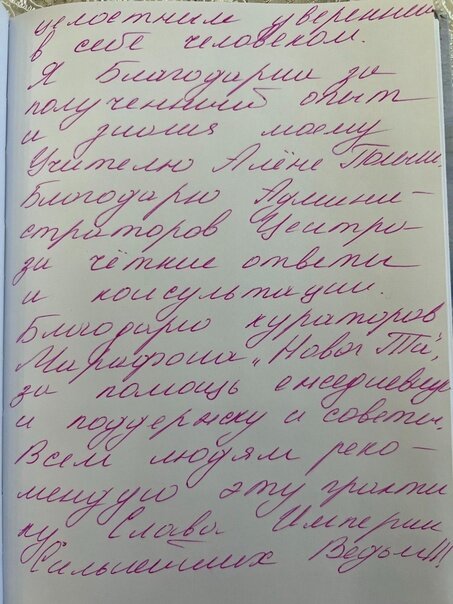 целостным уверенным
в себе человеком.
Я Благодарна за
полученный опыт
и знания моему
Учителю Алёне Полын.
Благодарю Админи-
страторов Центра
за чёткие ответы
и консультации.
Благодарю кураторов
Марафона „Новая Ты",
за помощь ежедневную
и поддержку и советы.
Всем людям реко-
мендую эту практи
ку Слава Империи
Сильнейших Ведьм!!!